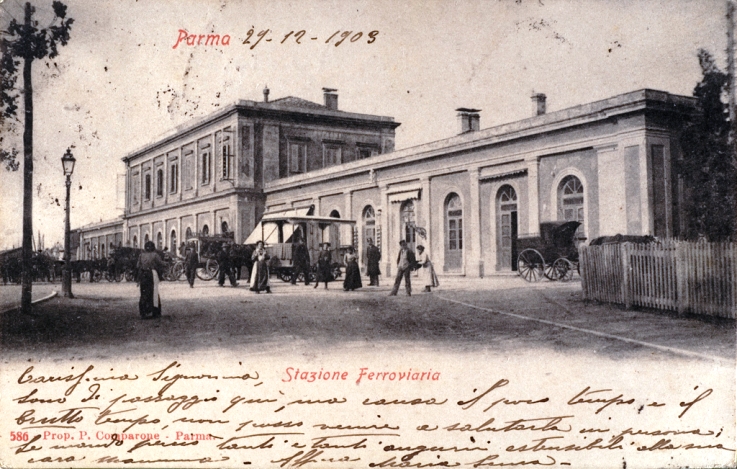 Parma 29-12-1903
Stazione Ferroviaria
Carissima Signorina,
sono di passaggio qui, ma causa il poco tempo, e il
brutto tempo, non posso venire a salutarla in persona;
586 Prop. P. Comparone - Parma.
Le mando tanti e tanti auguri estensibili alla sua
cara mamma - Maria